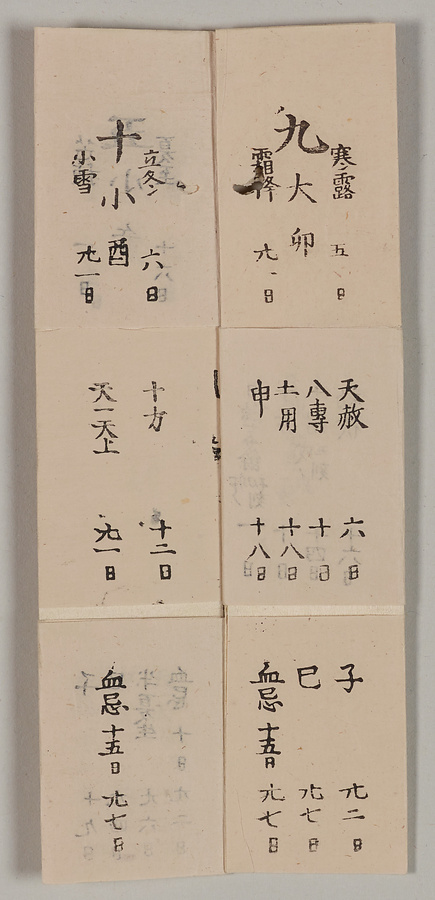 寒露 五日
九大 卯
霜降 廿日
天赦 六日
八專 十日
土用 十八日
申 十八日
子 廿二日
巳 廿七日
血忌 十五日 廿七日
立冬 六日
十小 酉
小雪 廿一日
十方 十二日
天一天上 廿一日
血忌 十五日 廿七日